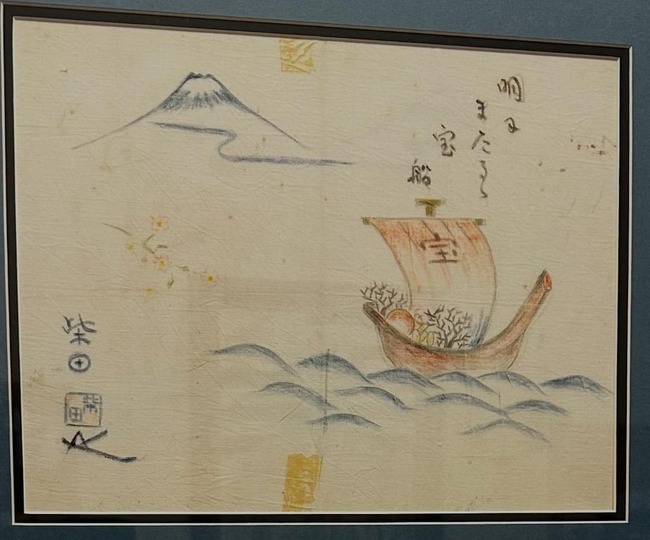 明日
またるゝ
宝船
宝
柴田
柴田